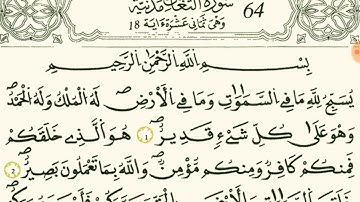 سُورَةُ التَّغَابُنِ مَدَنِيَّةٌ
64
وَهِيَ ثَمَانِي عَشْرَةَ اٰيَةً 18
بِسْمِ اللّٰهِ الرَّحْمٰنِ الرَّحِيمِ
يُسَبِّحُ لِلّٰهِ مَا فِي السَّمٰوَاتِ وَمَا فِي الْاَرْضِ لَهُ الْمُلْكُ وَلَهُ الْحَمْدُ
وَهُوَ عَلٰى كُلِّ شَيْءٍ قَدِيرٌ ﴿1﴾ هُوَ الَّذِي خَلَقَكُمْ
فَمِنْكُمْ كَافِرٌ وَمِنْكُمْ مُؤْمِنٌ وَاللّٰهُ بِمَا تَعْمَلُونَ بَصِيرٌ ﴿2﴾